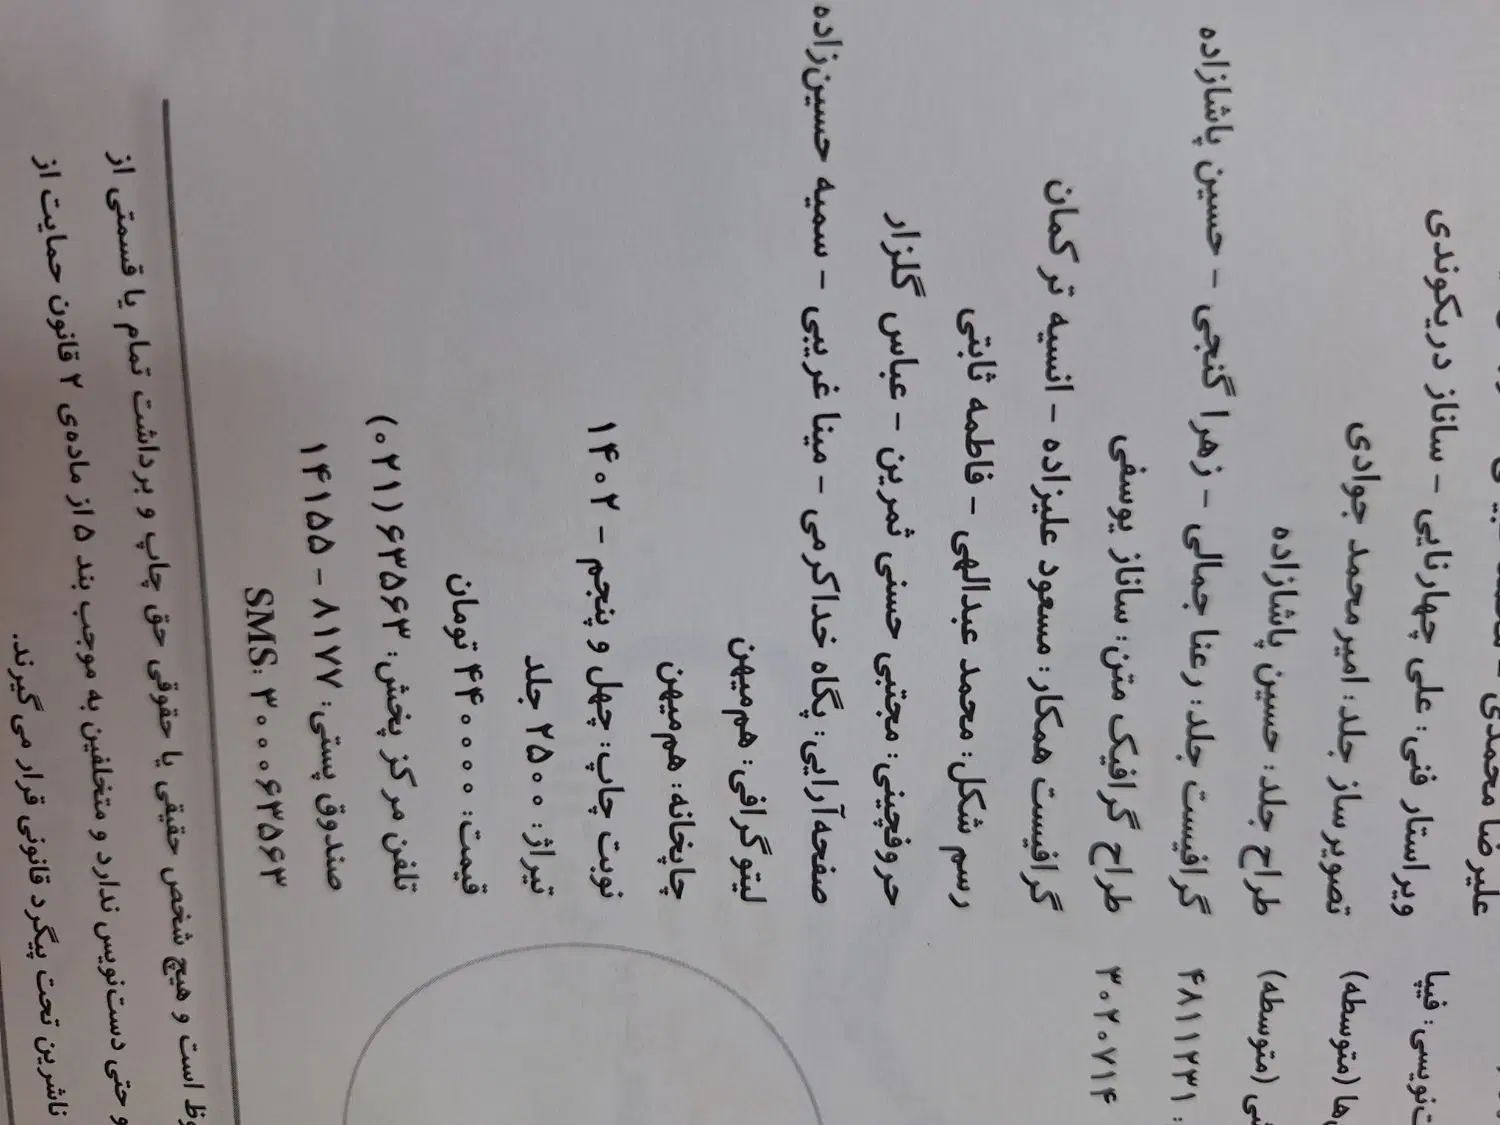 علیرضا محمدی
ویراستار فنی: علی چهارنایی - ساناز دریکوندی
ت‌نویسی: فیپا
تصویرساز جلد: امیرمحمد جوادی
‌ها (متوسطه)
طراح جلد: حسین پاشازاده
ی (متوسطه)
گرافیست جلد: رعنا جمالی - زهرا گنجی - حسین پاشازاده
: ۴۸۱۱۲۳۱
طراح گرافیک متن: ساناز یوسفی
۳۰۲۰۷۱۴
گرافیست همکار: مسعود علیزاده - انسیه ترکمان
رسم شکل: محمد عبدالهی - فاطمه ثابتی
حروفچینی: مجتبی حسنی ثمرین - عباس گلزار
صفحه‌آرایی: پگاه خداکرمی - مینا غریبی - سمیه حسین‌زاده
لیتوگرافی: هم‌میهن
چاپخانه: هم‌میهن
نوبت چاپ: چهل و پنجم - ۱۴۰۲
تیراژ: ۲۵۰۰ جلد
قیمت: ۴۴۰۰۰۰ تومان
تلفن مرکز پخش: ۶۳۵۶۳ (۰۲۱)
صندوق پستی: ۸۱۷۷ - ۱۴۱۵۵
SMS: ۳۰۰۰۶۳۵۶۳
وظ است و هیچ شخص حقیقی یا حقوقی حق چاپ و برداشت تمام یا قسمتی از
و حتی دست‌نویس ندارد و متخلفین به موجب بند ۵ از ماده‌ی ۲ قانون حمایت از
ناشرین تحت پیگرد قانونی قرار می‌گیرند.